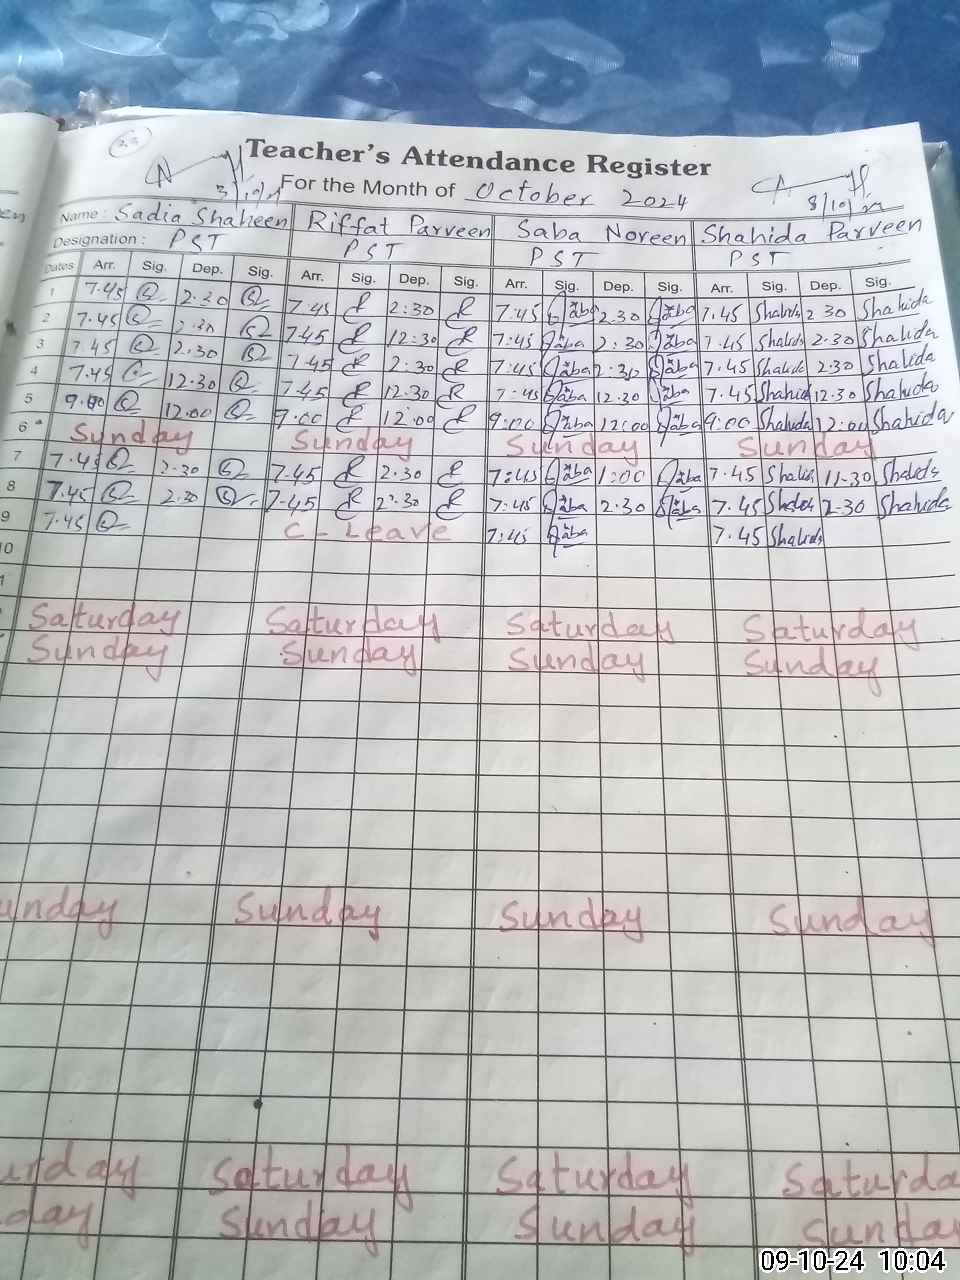 Teacher's Attendance Register
3/10/24
For the Month of October 2024
8/10/24
Name : Sadia Shaheen Riffat Parveen Saba Noreen Shahida Parveen
Designation : PST PST PST PST
Dates Arr. Sig. Dep. Sig. Arr. Sig. Dep. Sig. Arr. Sig. Dep. Sig. Arr. Sig. Dep. Sig.
1 7.45 2.30 7.45 2:30 7:45 Saba 2.30 Saba 7.45 Shahida 2 30 Shahida
2 7.45 2.30 7.45 12:30 7:45 Saba 2:30 Saba 7.45 Shahida 2.30 Shahida
3 7.45 2.30 7.45 2:30 7:45 Saba 2:30 Saba 7.45 Shahida 2.30 Shahida
4 7.45 12.30 7.45 12.30 7:45 Saba 12.30 Saba 7.45 Shahida 12.30 Shahida
5 9.00 12.00 9:00 12:00 9:00 Saba 12:00 Saba 9:00 Shahida 12:00 Shahida
6 Sunday Sunday Sunday Sunday
7 7.45 2.30 7.45 2.30 7:45 Saba 1:00 Saba 7.45 Shahida 11.30 Shahida
8 7.45 2.30 7.45 2:30 7:45 Saba 2.30 Saba 7.45 Shahida 2.30 Shahida
9 7.45 C-Leave 7:45 Saba 7.45 Shahida
10
Saturday Saturday Saturday Saturday
Sunday Sunday Sunday Sunday
unday Sunday Sunday Sunday
urday Saturday Saturday Saturda
day Sunday Sunday Sunday
09-10-24 10:04